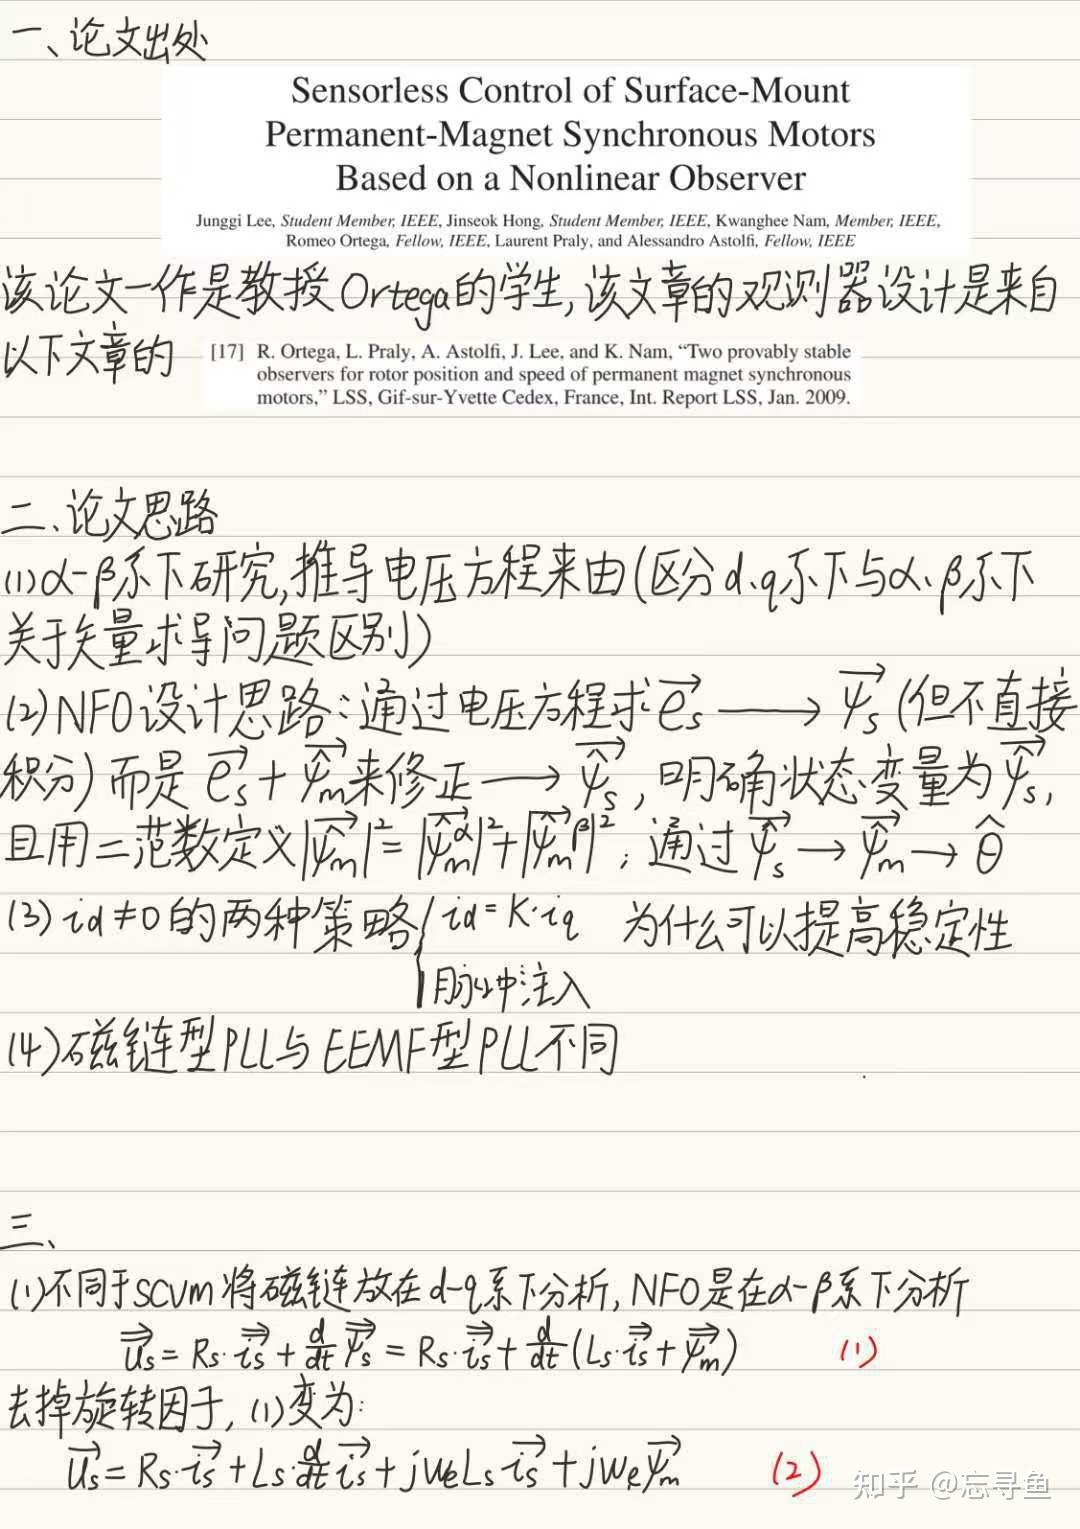 一、论文出处
Sensorless Control of Surface-Mount
Permanent-Magnet Synchronous Motors
Based on a Nonlinear Observer
Junggi Lee, Student Member, IEEE, Jinseok Hong, Student Member, IEEE, Kwanghee Nam, Member, IEEE,
Romeo Ortega, Fellow, IEEE, Laurent Praly, and Alessandro Astolfi, Fellow, IEEE
该论文一作是教授Ortega的学生,该文章的观测器设计是来自
以下文章的
[17] R. Ortega, L. Praly, A. Astolfi, J. Lee, and K. Nam, “Two provably stable
observers for rotor position and speed of permanent magnet synchronous
motors,” LSS, Gif-sur-Yvette Cedex, France, Int. Report LSS, Jan. 2009.
二、论文思路
(1)α-β系下研究,推导电压方程来由(区分d、q系下与α、β系下
关于矢量求导问题区别)
(2)NFO设计思路:通过电压方程求$\overrightarrow{e_s}$ ⟶ $\overrightarrow{\psi_s}$(但不直接
积分)而是$\overrightarrow{e_s}+\overrightarrow{\hat{\psi}_m}$来修正⟶$\overrightarrow{\hat{\psi}_s}$,明确状态变量为$\overrightarrow{\hat{\psi}_s}$,
且用二范数定义$|\overrightarrow{\hat{\psi}_m}|^2=|\overrightarrow{\hat{\psi}_m^{\alpha}}|^2+|\overrightarrow{\hat{\psi}_m^{\beta}}|^2$;通过$\overrightarrow{\hat{\psi}_s}$→$\overrightarrow{\hat{\psi}_m}$→$\hat{\theta}$
(3) id≠0的两种策略{ id=K·iq 为什么可以提高稳定性
脉冲注入
(4)磁链型PLL与EEMF型PLL不同
三、
(1)不同于SCVM将磁链放在d-q系下分析,NFO是在α-β系下分析
$\overrightarrow{\overrightarrow{u_s}}=R_s\cdot\overrightarrow{\overrightarrow{i_s}}+\frac{d}{dt}\overrightarrow{\overrightarrow{\psi_s}}=R_s\cdot\overrightarrow{\overrightarrow{i_s}}+\frac{d}{dt}(L_s\cdot\overrightarrow{\overrightarrow{i_s}}+\overrightarrow{\overrightarrow{\psi_m}})$ (1)
去掉旋转因子,(1)变为:
$\overrightarrow{u_s}=R_s\cdot\overrightarrow{i_s}+L_s\cdot\frac{d}{dt}\overrightarrow{i_s}+j\omega_e L_s\overrightarrow{i_s}+j\omega_e\overrightarrow{\psi_m}$ (2)
知乎 @忘寻鱼